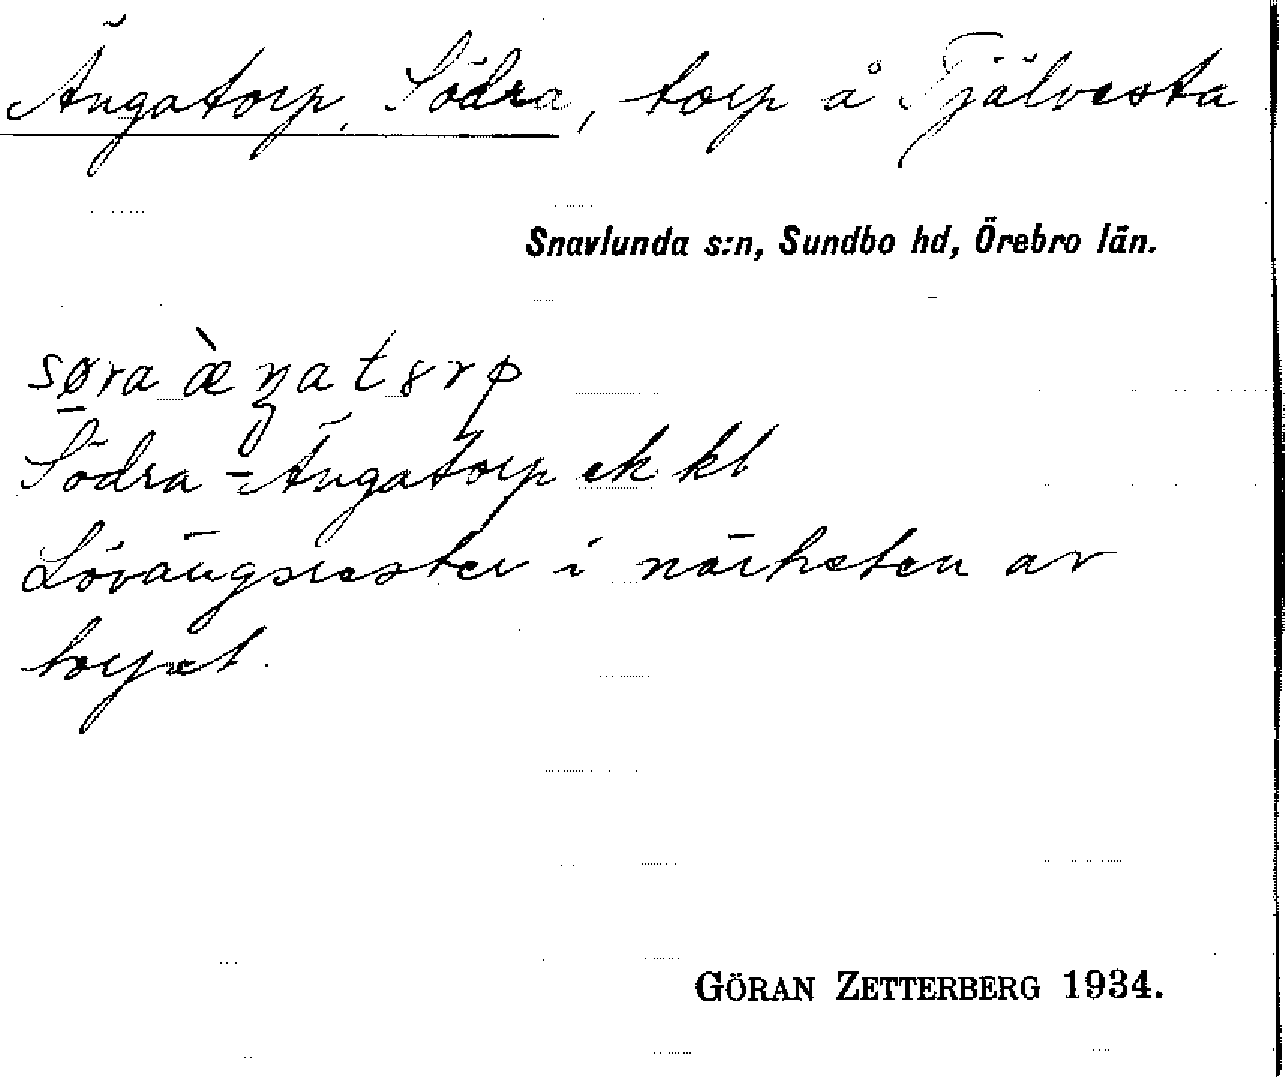 Ängatorp, Södra, torp å Tjälvesta
Snavlunda s:n, Sundbo hd, Örebro län.
søra æ̀ŋatɤrp
Södra -Ängatorp ek kl
Lövängsrester i närheten av
torpet.
GÖRAN ZETTERBERG 1934.